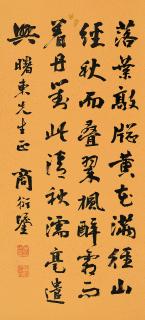 落葉敲牕黃花滿徑山
徑秋而疊翠楓醉霜而
着丹對此清秋濡毫遣
興
曙東先生正
商衍鎏